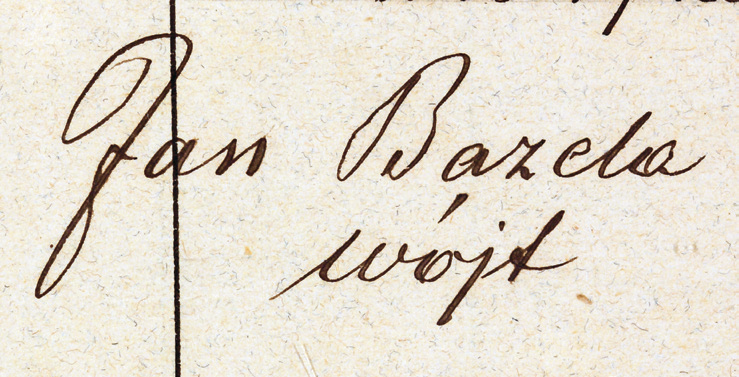 Jan Bazela
wójt